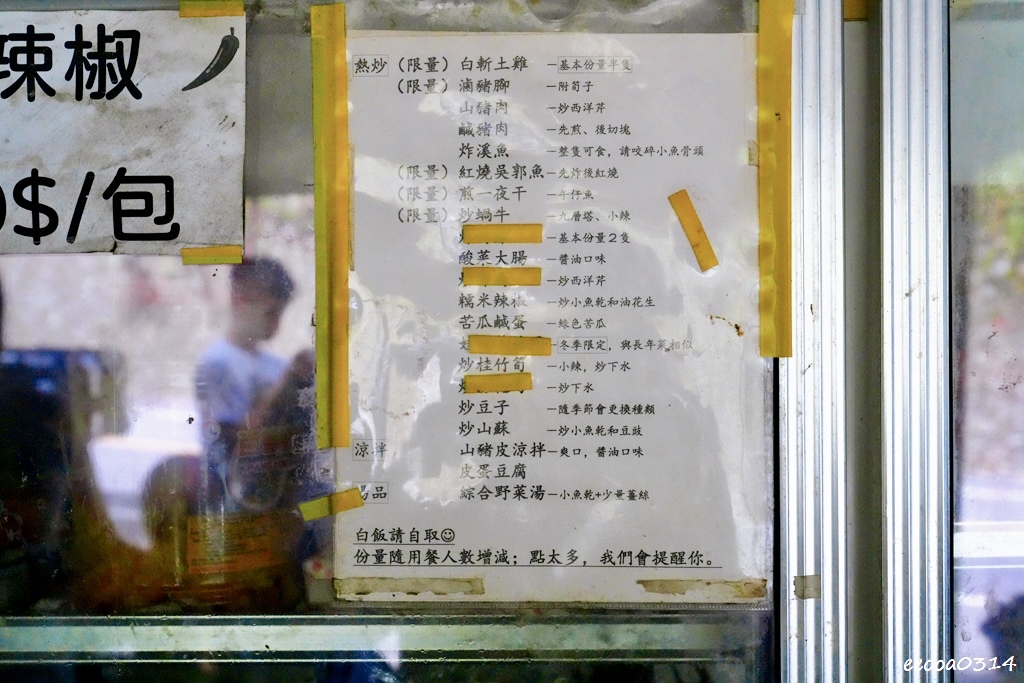 辣椒
$/包
熱炒 (限量) 白斬土雞 —基本份量半隻
(限量) 滷豬腳 —附筍子
山豬肉 —炒西洋芹
鹹豬肉 —先煎、後切塊
炸溪魚 —整隻可食,請咬碎小魚骨頭
(限量) 紅燒吳郭魚—先炸後紅燒
(限量) 煎一夜干 —午仔魚
(限量) 炒蝸牛 —九層塔、小辣
—基本份量2隻
酸菜大腸 —醬油口味
—炒西洋芹
糯米辣椒 —炒小魚乾和油花生
苦瓜鹹蛋 —綠色苦瓜
—冬季限定,與長年菜相似
炒桂竹筍 —小辣,炒下水
—炒下水
炒豆子 —隨季節會更換種類
炒山蘇 —炒小魚乾和豆豉
涼拌 山豬皮涼拌—爽口,醬油口味
皮蛋豆腐
湯品 綜合野菜湯—小魚乾+少量薑絲
白飯請自取☺
份量隨用餐人數增減;點太多,我們會提醒你。
eicoa0314